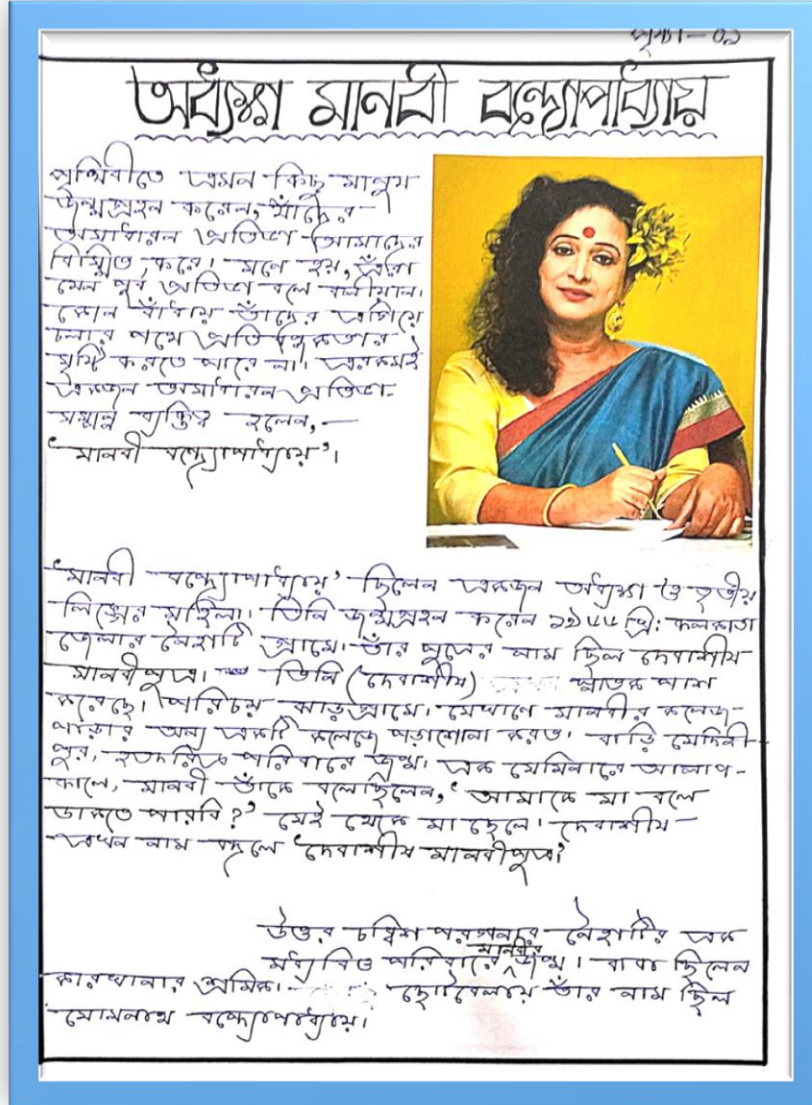 পৃষ্ঠা - ০১
অধ্যক্ষা মানবী বন্দ্যোপাধ্যায়
পৃথিবীতে এমন কিছু মানুষ
জন্মগ্রহন করেন, যাঁদের
অসাধারন প্রতিভা আমাদের
বিস্মিত করে। মনে হয়, এঁরা
যেন পূর্ব প্রতিভা বলে বলীয়ান।
কোন বাঁধায় তাঁদের এগিয়ে
চলার পথে প্রতিবন্ধকতার
সৃষ্টি করতে পারে না। এরকমই
একজন অসাধারন প্রতিভা-
সম্পন্ন ব্যক্তিত্ব হলেন,—
'মানবী বন্দ্যোপাধ্যায়'।
'মানবী বন্দ্যোপাধ্যায়' ছিলেন একজন অধ্যক্ষা ও তৃতীয়
লিঙ্গের মহিলা। তিনি জন্মগ্রহন করেন খ্রি: কলকাতা
জেলার নৈহাটি গ্রামে। তাঁর পুত্রের নাম ছিল দেবাশীষ
মানবীপুত্র। তিনি (দেবাশীষ) স্নাতক পাশ
করেছে। পরিচয় ঝাড়গ্রামে। সেখানে মানবীর কলেজ-
পাড়ার অন্য একটি কলেজে পড়াশোনা করত। বাড়ি মেদিনী-
পুর, হতদরিদ্র পরিবারে জন্ম। এক সেমিনারে আলাপ-
কালে, মানবী তাঁকে বলেছিলেন, 'আমাকে মা বলে
ডাকতে পারবি?' সেই থেকে মা ছেলে। দেবাশীষ
এখন নাম বদলে 'দেবাশীষ মানবীপুত্র'।
উত্তর চব্বিশ পরগনার নৈহাটির এক
মধ্যবিত্ত পরিবারে মানবীর জন্ম। বাবা ছিলেন
কারখানার শ্রমিক। ছোটবেলায় তাঁর নাম ছিল
সোমনাথ বন্দ্যোপাধ্যায়।